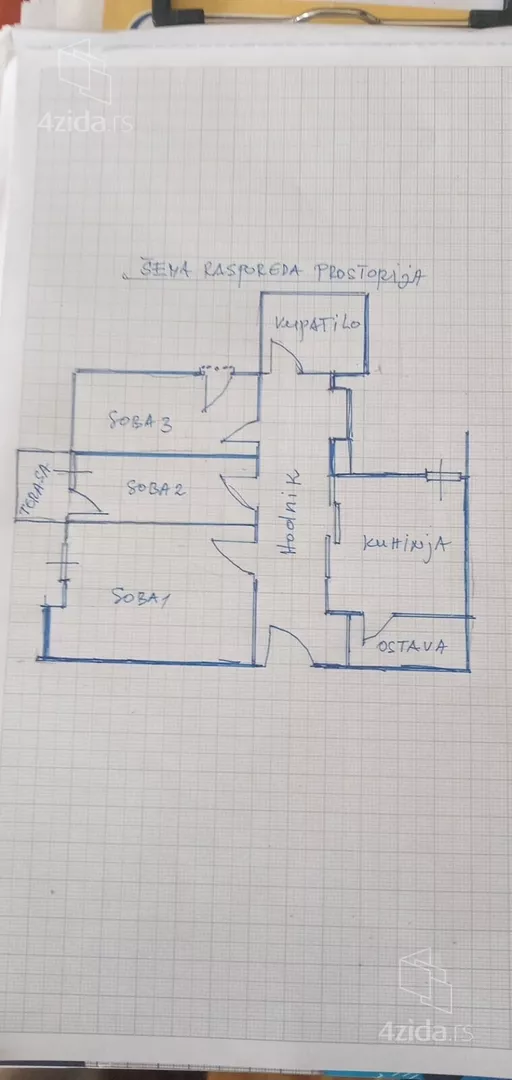 4zida.rs
ŠEMA RASPOREDA PROSTORIJA
KUPATILO
SOBA 3
TERASA
SOBA 2
Hodnik
KUHINJA
SOBA 1
OSTAVA
4zida.rs